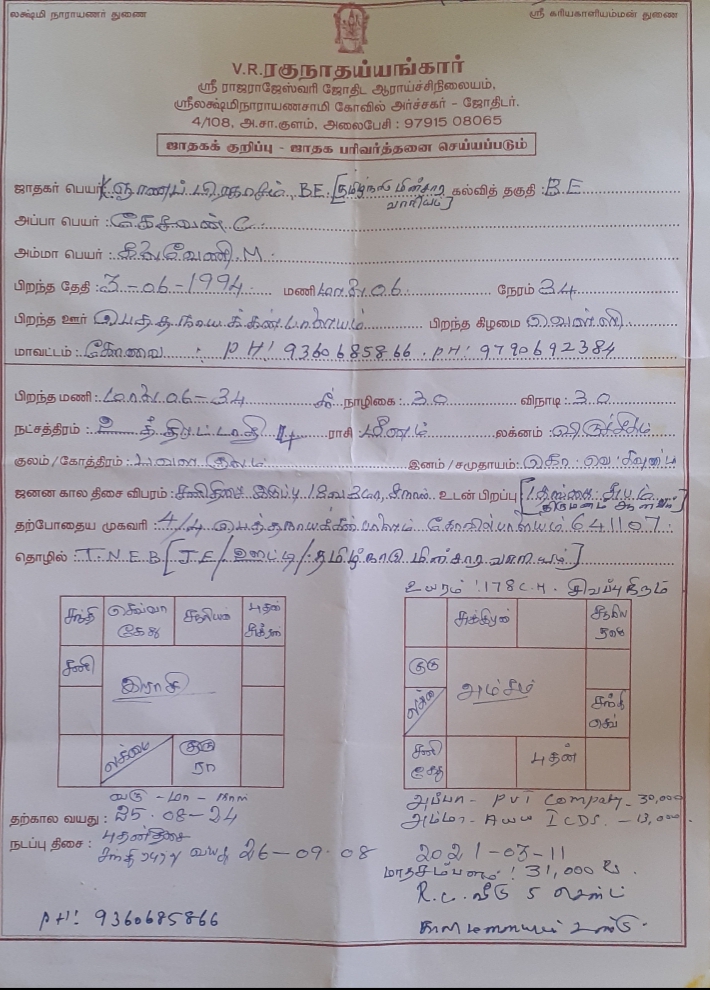 லக்ஷ்மி நாராயணர் துணை
ஸ்ரீ கரியகாளியம்மன் துணை
V.R.ரகுநாதய்யங்கார்
ஸ்ரீ ராஜராஜேஸ்வரி ஜோதிட ஆராய்ச்சிநிலையம்,
ஸ்ரீலக்ஷ்மிநாராயணசாமி கோவில் அர்ச்சகர் - ஜோதிடர்.
4/108, அ.சா.குளம், அலைபேசி : 97915 08065
ஜாதகக் குறிப்பு - ஜாதக பரிவர்த்தனை செய்யப்படும்
ஜாதகர் பெயர் K. BE. [தமிழ்நாடு மின்சார வாரியம்] கல்வித் தகுதி : B.E
அப்பா பெயர் : கேசவன் C.
அம்மா பெயர் : M.
பிறந்த தேதி : 3-06-1994 மணி மாலை.06 நேரம் 34
பிறந்த ஊர் பெத்தநாயக்கன்பாளையம் பிறந்த கிழமை வெள்ளி
மாவட்டம் : கோவை : PH: 9360685866 . PH: 9790692384
பிறந்த மணி : மாலை.06-34 நாழிகை : 30 விநாடி : 30
நட்சத்திரம் : உத்திரட்டாதி 4 ராசி மீனம் லக்னம் விருச்சிகம்
குலம்/கோத்திரம் : குலம் இனம் / சமுதாயம் :
ஜனன கால திசை விபரம் : சனிதிசை இருப்பு உடன் பிறப்பு
தற்போதைய முகவரி : 4/4 பெத்தநாயக்கன்பாளையம் கோவில்பாளையம் 641107
தொழில் T.N.E.B [J.E/ஊட்டி/தமிழ்நாடு மின்சார வாரியம்]
உயரம் : 178 C.M. சிவப்பு நிறம்
சந்தி செவ்வா கேது சூரியன் புதன் சுக்ரன்
சனி
இராசி
லக்னம் குரு ரா
சுக்கிரன் சூரிய ராகு
குரு
லக்னம் அம்சம் சந்தி செவ்
சனி கேது புதன்
வரு - மா - நாள்
தற்கால வயது : 25-08-24
நடப்பு திசை : புதன்திசை
வயது 26-09-08 2021-03-11
அப்பா - PVT Company - 30,000
அம்மா - ICDS. - 13,000
மாதசம்பளம் : 31,000 ரூ
R.C. வீடு 5 சென்ட்
PH: 9360685866
காலிமனையும் உண்டு.